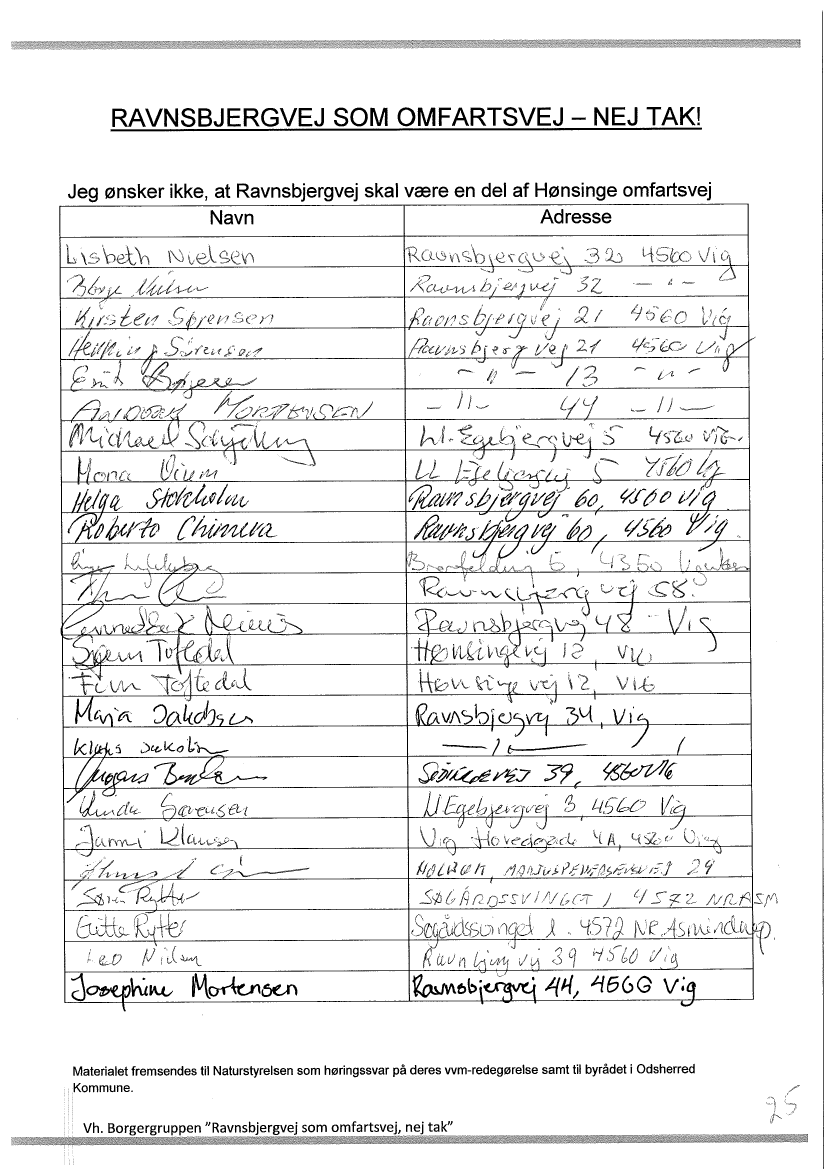 RAVNSBJERGVEJ SOM OMFARTSVEJ – NEJ TAK!
Jeg ønsker ikke, at Ravnsbjergvej skal være en del af Hønsinge omfartsvej
Navn Adresse
Lisbeth Nielsen Ravnsbjergvej 32 4560 Vig
Børge Nielsen Ravnsbjergvej 32 – " –
Kirsten Sørensen Ravnsbjergvej 21 4560 Vig
Henning Sørensen Ravnsbjergvej 21 4560 Vig
– " – 13 – " –
Mortensen – " – 44 – " –
Michael Ll. Egebjergvej 5 4560 Vig.
Mona Ll 5 4560 Vig
Helga Stokholm Ravnsbjergvej 60, 4560 Vig
Roberto Chimera Ravnsbjergvej 60, 4560 Vig.
6, 4350
Ravnsbjergvej 58.
Ravnsbjergvej 48 Vig
Toftedal Hønsingevej 12, Vig
Finn Toftedal Hønsinge vej 12, Vig
Maja Jakobsen Ravnsbjegvej 34, Vig
Jakobsen — " —
39, 4560 Vig
Linda Sørensen Ll Egebjergvej 3, 4560 Vig
Janni Klausen Vig Hovedgade 4A, 4560 Vig
29
Søren Rytter SØGÅRDSSVINGET 1 4572 NR ASM
Gitte Rytter Søgårdssvinget 1. 4572 NR. Asmindrup.
Leo Nielsen vej 39 4560 Vig
Josephine Mortensen Ravnsbjergvej 44, 4560 Vig
Materialet fremsendes til Naturstyrelsen som høringssvar på deres vvm-redegørelse samt til byrådet i Odsherred
Kommune.
25
Vh. Borgergruppen "Ravnsbjergvej som omfartsvej, nej tak"